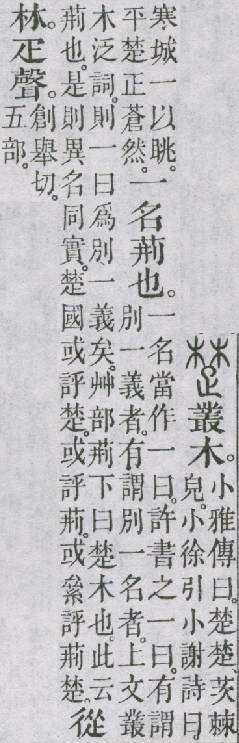 楚叢木。
小雅傳曰。楚楚、茨棘
皃。小徐引小謝詩曰
寒城一以眺。
平楚正蒼然。
一名荊也。
一名當作一曰。許書之一曰。有謂
別一義者。有謂別一名者。上文叢
木泛詞。則一曰爲別一義矣。艸部荊下曰楚木也。此云
荊也。是則異名同實。楚國或評楚。或評荊。或絫評荊楚。
從
林疋聲。
創舉切。
五部。